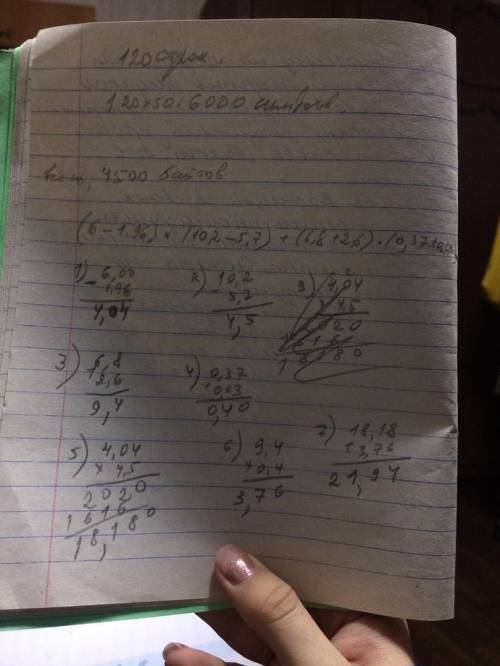 120 строк.
120×50=6000 символов.
7500 байтов
(6-1,96)×(10,2-5,7)+(6,8+2,6)·(0,37+0,03)
1) 6,00
- 1,96
4,04
2) 10,2
- 5,7
4,5
3) 4,04
4,5
2020
1616
18180
3) 6,8
+ 2,6
9,4
4) 0,37
+ 0,03
0,40
5) 4,04
× 4,5
2020
1616
18,180
6) 9,4
× 0,4
3,76
7) 18,18
+ 3,76
21,94